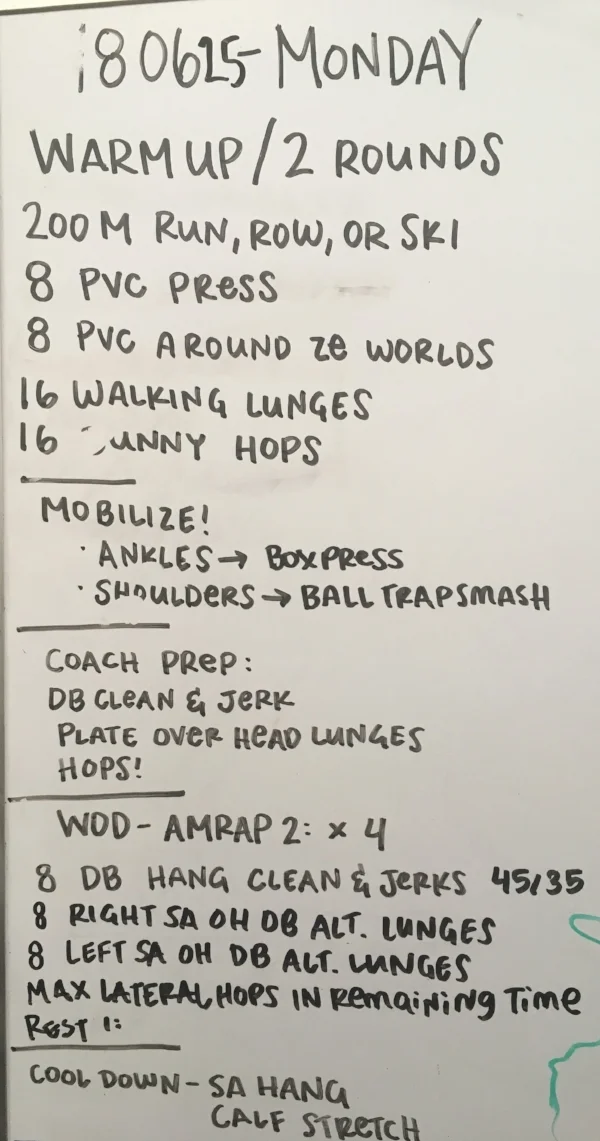 180625-MONDAY
WARM UP/2 ROUNDS
200 M RUN, ROW, OR SKI
8 PVC PRESS
8 PVC AROUND ZE WORLDS
16 WALKING LUNGES
16 BUNNY HOPS
MOBILIZE!
· ANKLES → BOX PRESS
· SHOULDERS → BALL TRAP SMASH
COACH PREP:
DB CLEAN & JERK
PLATE OVER HEAD LUNGES
HOPS!
WOD - AMRAP 2: x 4
8 DB HANG CLEAN & JERKS 45/35
8 RIGHT SA OH DB ALT. LUNGES
8 LEFT SA OH DB ALT. LUNGES
MAX LATERAL HOPS IN REMAINING TIME
REST 1:
COOL DOWN - SA HANG
CALF STRETCH